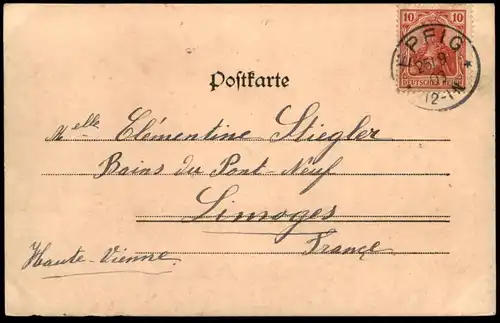 10 10
DEUTSCHES REICH
EPFIG
25/9
12-1N
Postkarte
Melle Clémentine Stiegler
Bains du Pont-Neuf
Limoges
France
Haute-Vienne